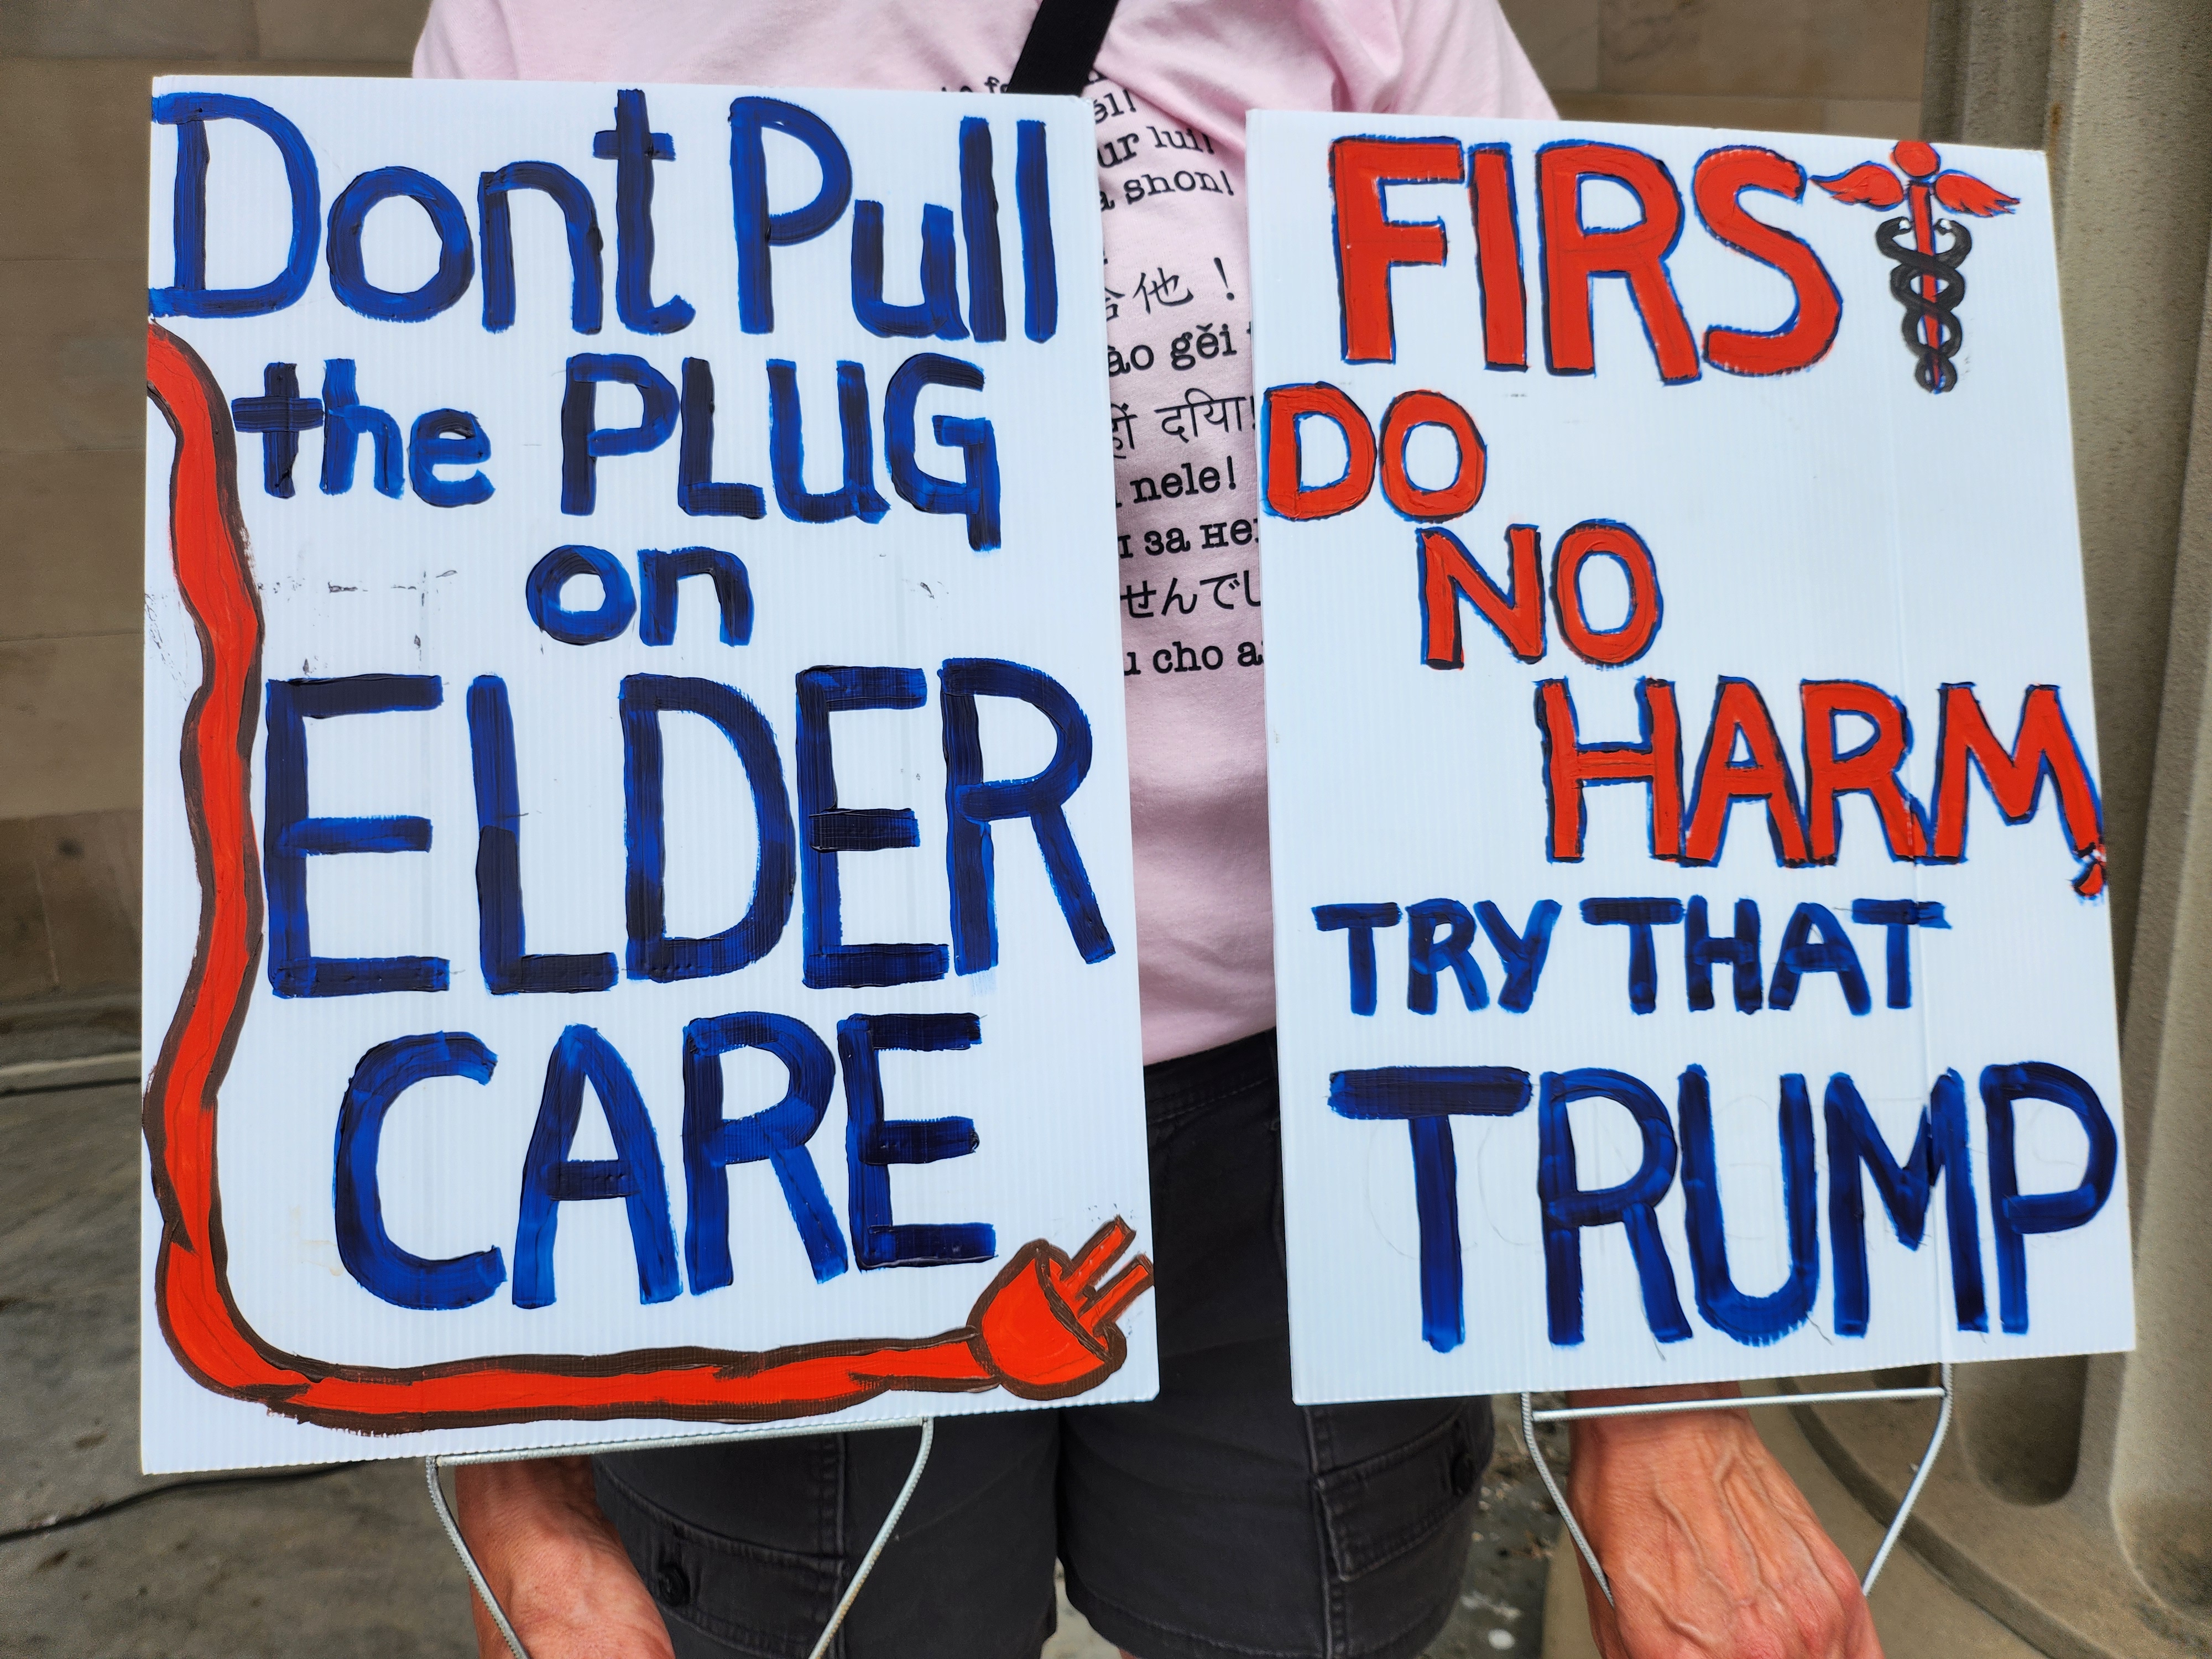 Dont Pull
the PLUG
on
ELDER
CARE
él!
ur lui!
shon!
他！
gěi
दिया!
nele!
за
せんでし
cho
FIRST
DO
NO
HARM,
TRY THAT
TRUMP